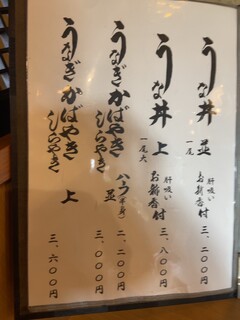 うな丼 並 肝吸い お新香 付 三、二〇〇円
一尾
うな丼 上 肝吸い お新香付 三、八〇〇円
一尾大
うなぎ かばやき しらやき ハーフ(半身) 二、二〇〇円
並 三、〇〇〇円
うなぎ かばやき しらやき 上 三、六〇〇円